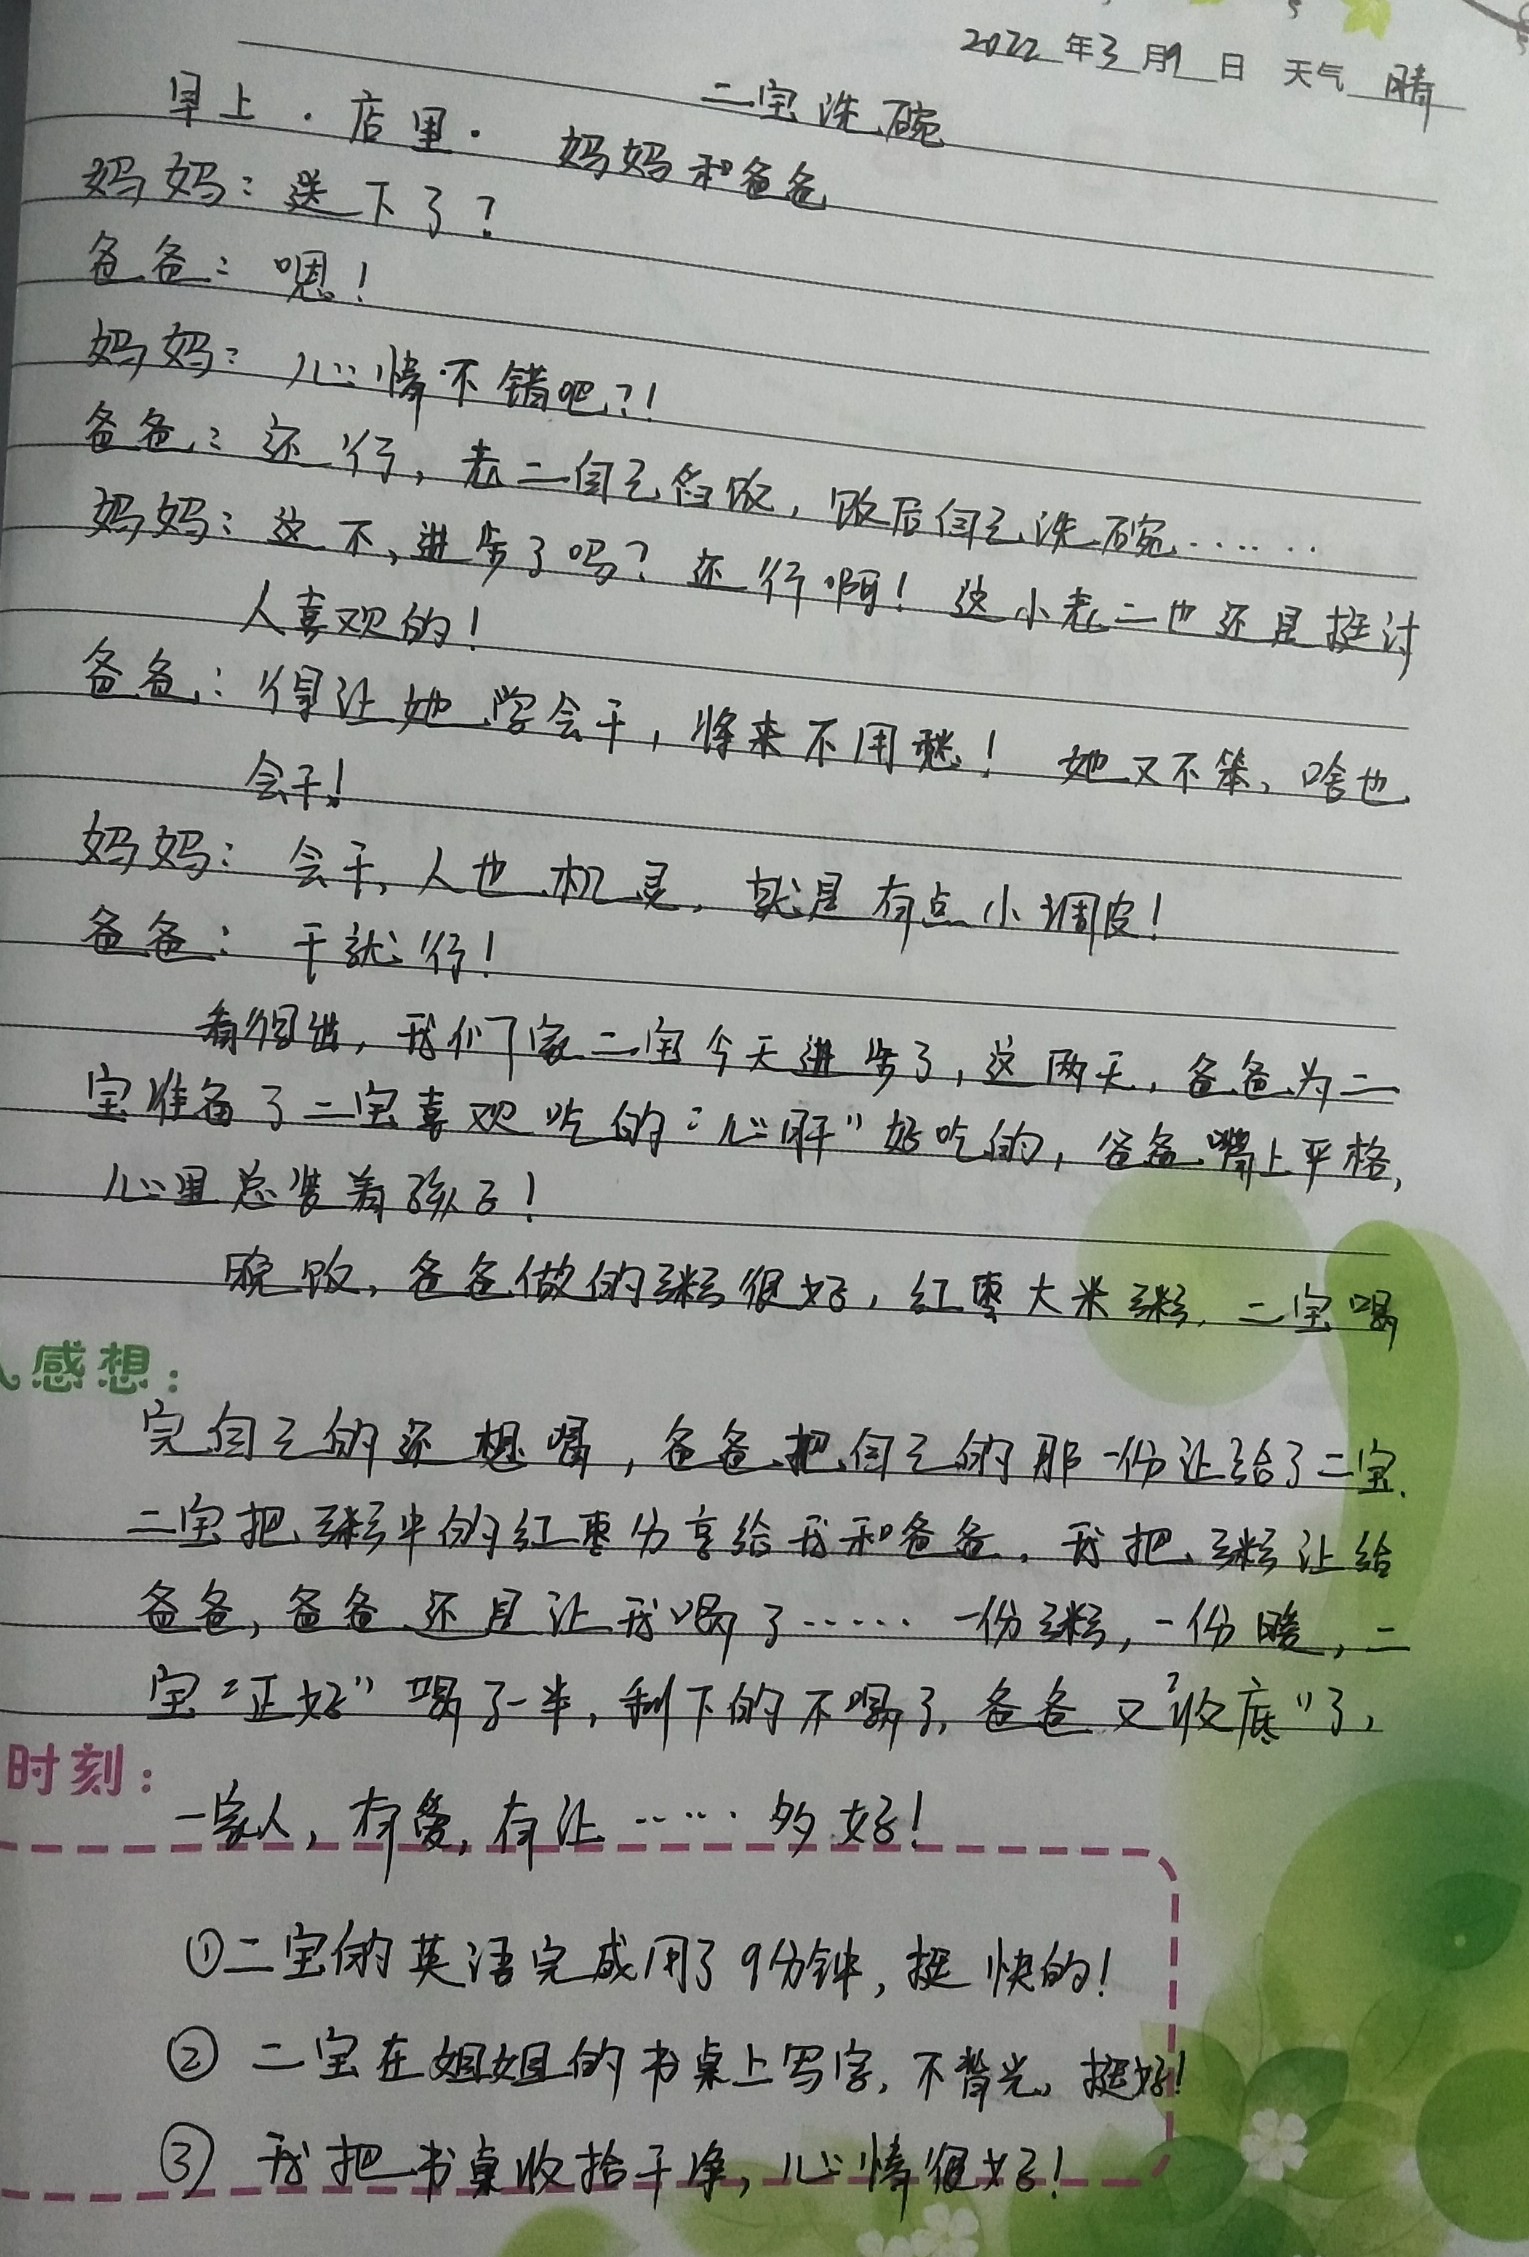 2022年3月9日 天气 晴
二宝洗碗
早上·店里· 妈妈和爸爸
妈妈：送下了？
爸爸：嗯！
妈妈：心情不错吧？！
爸爸：还行，老二自己包饭，饭后自己洗碗……
妈妈：这不，进步了吗？还行啊！这小老二也还是挺讨
人喜欢的！
爸爸：得让她学会干，将来不用愁！她又不笨，啥也
会干！
妈妈：会干，人也机灵，就是有点小调皮！
爸爸：干就行！
看得出，我们家二宝今天进步了，这两天，爸爸为二
宝准备了二宝喜欢吃的“心肝”好吃的，爸爸嘴上严格，
心里总装着孩子！
晚饭，爸爸做的粥很好，红枣大米粥，二宝喝
感想：
完自己的还想喝，爸爸把自己的那一份让给了二宝.
二宝把粥中的红枣分享给我和爸爸，我把粥让给
爸爸，爸爸还是让我喝了……一份粥，一份暖，二
宝“正好”喝了一半，剩下的不喝了，爸爸又“收底”了，
时刻：
一家人，有爱，有让……多好！
①二宝的英语完成用了9分钟，挺快的！
②二宝在姐姐的书桌上写字，不背光，挺好！
③我把书桌收拾干净，心情很好！